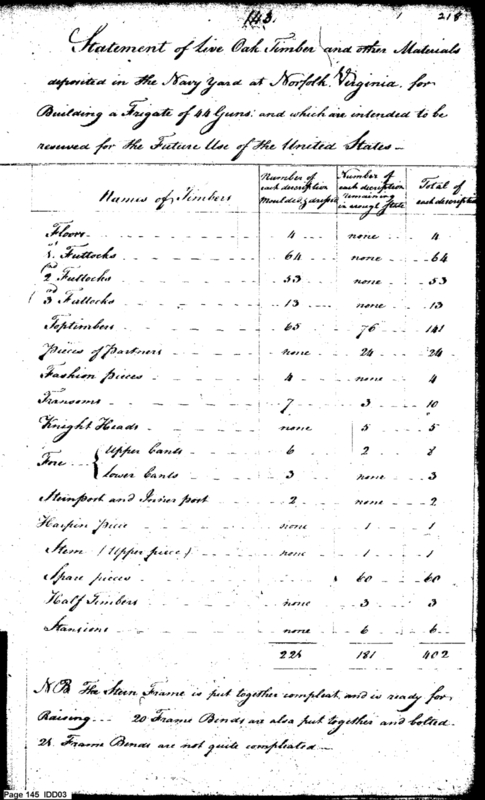 143. 1 218
Statement of Live Oak Timber and other Materials
deposited in the Navy Yard at Norfolk Virginia for
Building a Frigate of 44 Guns: and which are intended to be
reserved for the Future Use of the United States —
Names of Timbers | Number of each description Moulded & dressed | Number of each description remaining in rough State | Total of each description
Floors 4 none 4
1st Futtocks 64 none 64
2nd Futtocks 53 none 53
3rd Futtocks 13 none 13
Toptimbers 65 76 141
Pieces of Partners none 24 24
Fashion pieces 4 none 4
Transoms 7 3 10
Knight Heads none 5 5
Fore { Upper Cants 6 2 8
Lower Cants 3 none 3
Sternport and Inner port 2 none 2
Harpin piece none 1 1
Stem (Upper piece) none 1 1
Spare pieces 60 60
Half Timbers none 3 3
Stansions none 6 6
221 181 402
NB The Stern Frame is put together compleat and is ready for
Raising 20 Frame Bends are also put together and bolted
24 Frame Bends are not quite compleated —
Page 145 IDD03